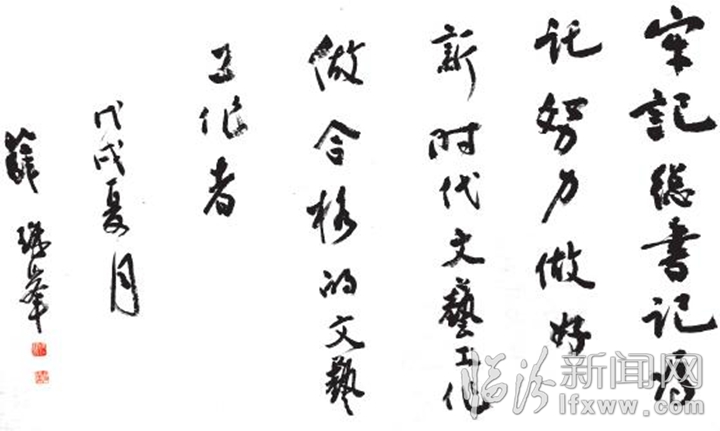 牢記總書记囑
託努力做好
新时代文藝工作
做合格的文藝
工作者
戊戌夏月
薛
临汾新闻网
www.lfxww.com